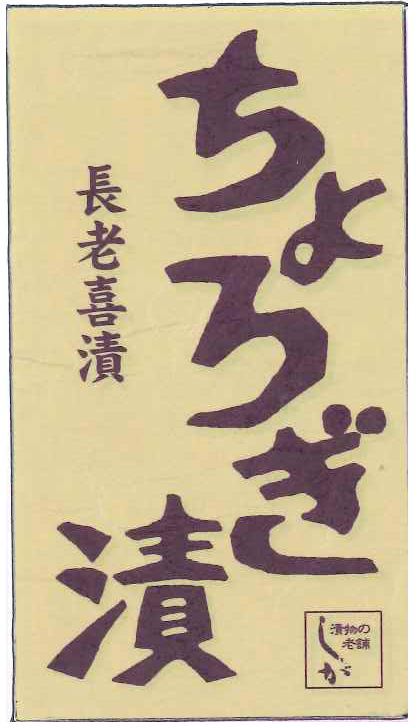 ちょろぎ漬
長老喜漬
漬物の
老舗
しが